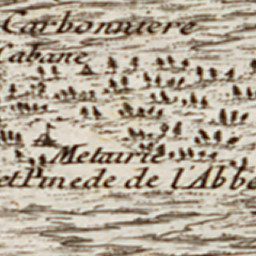 Carbonniere
Cabane
Metairie
et Pinede de l'Abbé